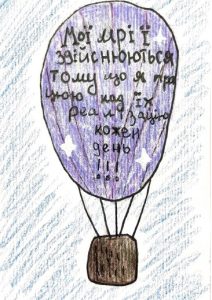 Мої мрії ї
здійснюються
тому що я пра
цюю над їх
реалізацію
кожен
день
!!!